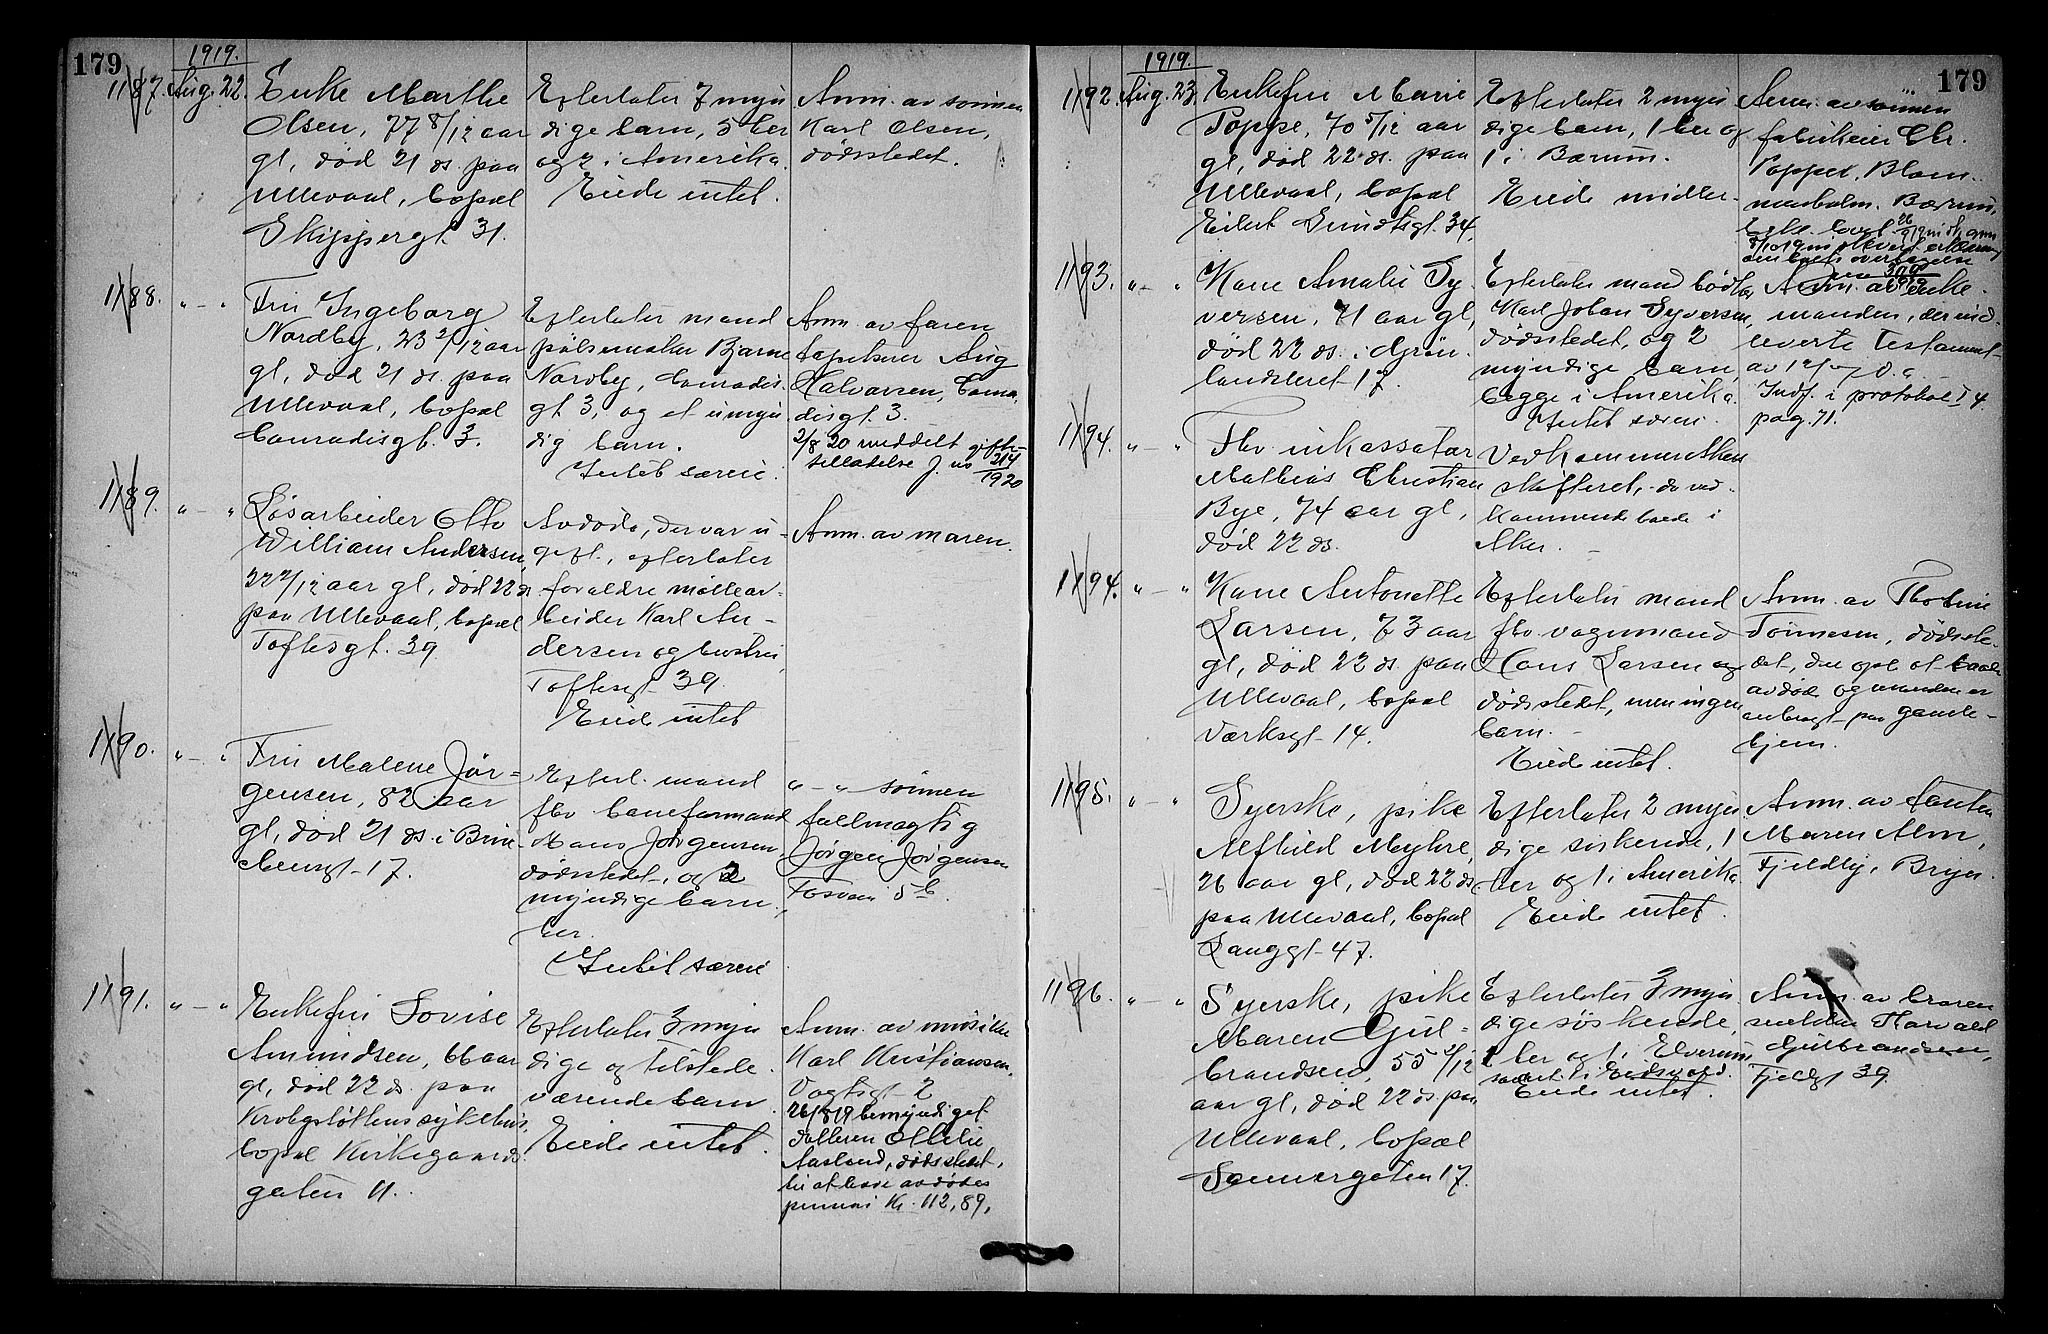 179
1919.
1187. Aug. 22.
Enke Marthe
Olsen, 77 8/12 aar
gl, død 21 ds. paa
Ullevaal, bopæl
Skippergt. 31.
Efterlater 7 myn
dige barn, 5 her
og 2 i Amerika.
Eiede intet.
Anm. av sønnen
Karl Olsen,
dødsstedet.
1188. " — "
Fru Ingeborg
Nordby, 23 2/12 aar
gl, død 21 ds. paa
Ullevaal, bopæl
Conradisgt. 3.
Efterlater mand
pølsemaker Bjarne
Nordby, Conradis.
gt 3, og et umyn
dig barn.
Intet særeie.
Anm. av faren
tapetserer Aug
Halvorsen, Conra.
disgt. 3.
2/8 20 meddelt gifte-
tilladelse J. no 214
1920
1189. " — "
Løsarbeider Otto
William Andersen,
22 2/12 aar gl, død 22 ds
paa Ullevaal, bopæl
Toftesgt. 39
Avdøde, der var u-
gift, efterlater
forældre møllear-
beider Karl An-
dersen og hustru,
Toftesgt 39.
Eiede intet
Anm. av moren.
1190. " — "
Fru Malene Jør-
gensen, 82 aar
gl, død 21 ds. i Brin-
kengt 17.
Efterl. mand
fhv baneformand
Hans Jørgensen,
dødsstedet, og 2
myndige barn,
her.
Intet særeie
" — " sønnen
fuldmægtig
Jørgen Jørgensen
Fosvei 5b.
1191. " — "
Enkefru Lovise
Amundsen, 66 aar
gl, død 22 ds. paa
Krohgstøttens sykehus,
bopæl Kirkegaards
gaten 11.
Efterlater 3 myn
dige og tilstede-
værende barn.
Eiede intet.
Anm. av musiker
Karl Kristiansen,
Vogtsgt 2
26/8 19 bemyndiget
datteren Ottilie
Aasland, dødsstedet,
til at hæve avdødes
penner Kr. 112,89.
179
1919.
1192. Aug. 23.
Enkefru Marie
Poppe, 70 5/12 aar
gl, død 22 ds. paa
Ullevaal, bopæl
Eilert Sundtsgt. 34.
Efterlater 2 myn
dige barn, 1 her og
1 i Bærum.
Eiede midler.
Anm. av sønnen
fabrikeier Chr.
Poppe, Blom-
masholm. Bærum.
1193. " — "
Kone Amalie Sy-
versen, 71 aar gl,
død 22 ds. i Grøn-
landsleret 17.
Efterlater mand bødker
Karl Johan Syversen,
dødsstedet, og 2
myndige barn,
begge i Amerika.
Intet særeie.
Anm. av enke-
manden, der ind-
leverte testament
Indf. i protokol I 4
pag. 71.
1194. " — "
Fhv inkassator
Mathias Christian
Bye, 74 aar gl,
død 22 ds.
Vedkommer Aker
skifteret, da ved-
kommende boede i
Aker.
1194. " — "
Kone Antonette
Larsen, 73 aar
gl, død 22 ds. paa
Ullevaal, bopæl
Værksgt 14.
Efterlater mand
fhv vognmand
Hans Larsen
dødsstedet, men ingen
barn.
Eiede intet.
Anm. av Thobine
Tønnesen, dødsste-
det, der opl at baade
avdøde og manden er
anbragt paa gamle-
hjem.
1195. " — "
Syerske, pike
Alfhild Myhre,
26 aar gl, død 22 ds
paa Ullevaal, bopæl
Langgt 47.
Efterlater 2 myn
dige søskende, 1
her og 1 i Amerika.
Eiede intet.
Anm. av tanten
Maren Alm,
Fjeldly, Bryn.
1196. " — "
Syerske, pike
Maren Gul-
brandsen, 55 2/12
aar gl, død 22 ds. paa
Ullevaal, bopæl
Sannergaten 17.
Efterlater 3 myn
dige søskende,
1 her og 1 i Elverum
samt 1 i Eidsvold.
Eiede intet.
Anm. av broren
smelder Thorvald
Gulbrandsen,
Fjeldgt 39